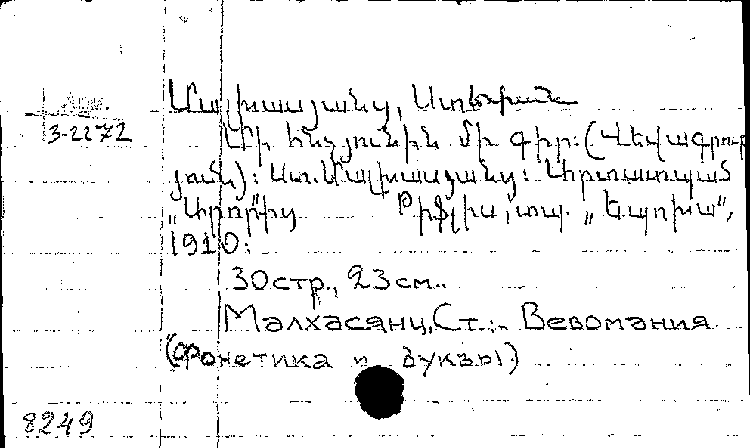 Арм.
3-2272
Մալխասյանց, Ստեփան
Մի հնչյունին մի գիր: (Վեվագրու
յուն): Ստ. Մալխասյանց: Արտատպած
„Արոր"ից Թիֆլիս, տպ. „Էպոխա",
1910:
30 стр., 23 см..
Малхасянц, Ст.:- Вевомания
(Фонетика и буквы)
8249